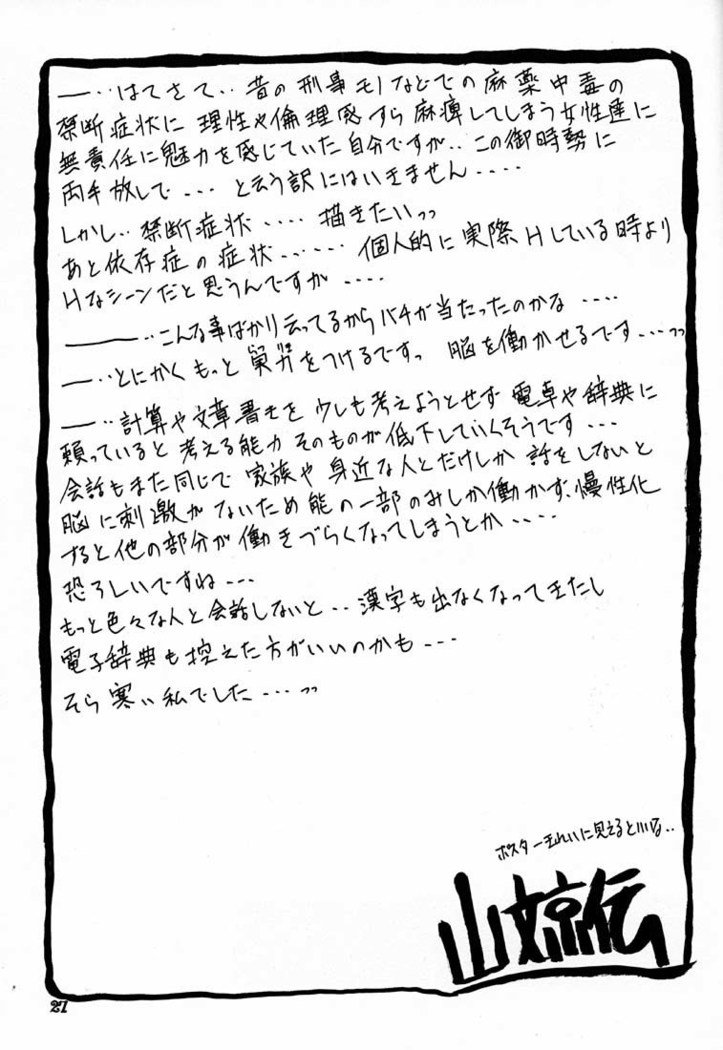 ―‥はてさて‥昔の刑事モノなどでの麻薬中毒の
禁断症状に 理性や倫理感すら麻痺してしまう女性達に
無責任に魅力を感じていた自分ですが‥この御時勢に
両手放しで‥‥と云う訳にはいきません‥‥
しかし‥禁断症状‥‥描きたいッッ
あと依存症の症状‥‥‥個人的に実際Hしている時より
Hなシーンだと思うんですが‥‥
―――‥こんな事ばかり云ってるからバチが当たったのかな‥‥
―‥とにかくもっと をつけるですっ 脳を働かせるです‥‥ッッ
―‥計算や文章書きを少しも考えようとせず電卓や辞典に
頼っていると考える能力そのものが低下していくそうです‥‥
会話もまた同じで家族や身近な人とだけしか話をしないと
脳に刺激がないため能の一部のみしか働かず、慢性化
すると他の部分が働きづらくなってしまうとか‥‥
恐ろしいですね‥‥
もっと色々な人と会話しないと‥漢字も出なくなってきたし
電子辞典も控えた方がいいのかも‥‥
そら寒い私でした‥‥ッッ
ポスターきれいに見えるといいな‥
山文京伝
27